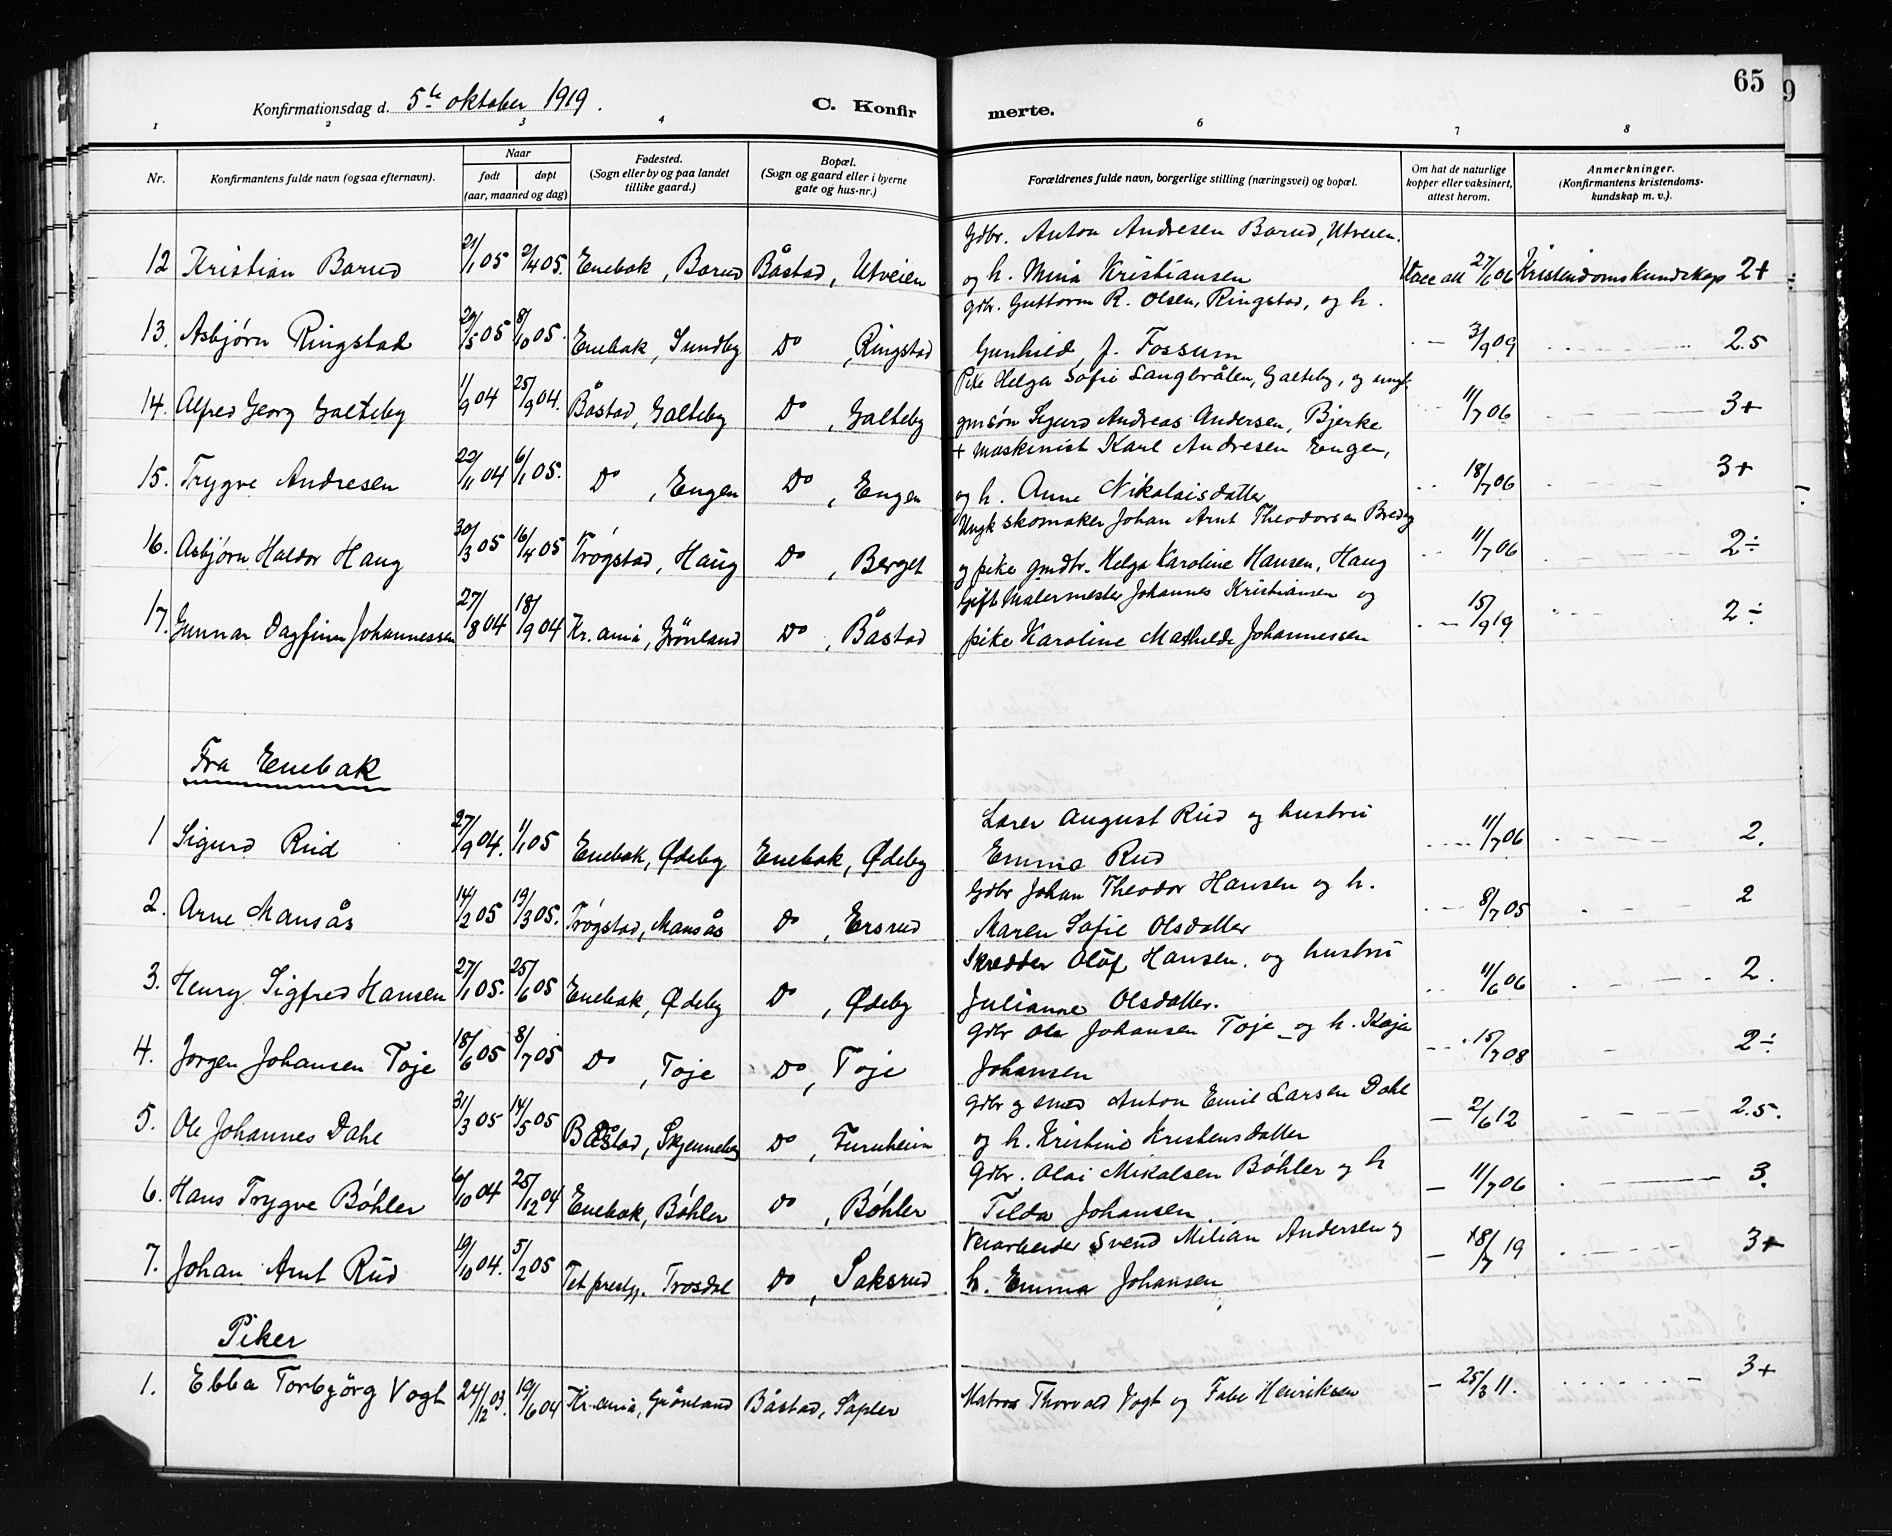 65
9
Konfirmationsdag d. 5te oktober 1919. C. Konfirmerte.
1 2 3 4 6 7 8
Nr. Konfirmantens fulde navn (ogsaa efternavn). Naar født døpt (aar, maaned og dag) Fødested. (Sogn eller by og paa landet tillike gaard.) Bopæl. (Sogn og gaard eller i byerne gate og hus-nr.) Forældrenes fulde navn, borgerlige stilling (næringsvei) og bopæl. Om hat de naturlige kopper eller vaksinert, attest herom. Anmerkninger. (Konfirmantens kristendoms-kundskap m. v.).
Gdbr. Anton Andresen Borud, Utveien.
12 Kristian Borud 21/1 05 2/4 05. Enebak, Borud Båstad, Utveien og h. Mina Kristiansen Vacc att 27/6 06 Kristendomskundskap 2+
gdbr. Guttorm R. Olsen, Ringstad, og h.
13. Asbjørn Ringstad 29/5 05 8/10 05. Enebak, Sundby Do, Ringstad Gunhild, f. Fossum - 3/9 09 2.5
Pike Helga Sofie Langbråten, Galteby, og ungk.
14. Alfred Georg Galteby 1/9 04 25/9 04. Båstad, Galteby Do, Galteby gmsøn Sigurd Andreas Andersen, Bjerke 11/7 06 3+
+ Maskinist Karl Andresen Engen,
15. Trygve Andresen 22/11 04 6/1 05. Do, Engen Do, Engen og h. Anne Nikolaisdatter 18/7 06 3+
Ungk skomaker Johan Arnt Theodorsen
16. Asbjørn Haldor Haug 30/3 05 16/4 05 Trøgstad, Haug Do, Berget og pike gmdtr. Helga Karoline Hansen, Haug 11/7 06 2÷
Gift Malermester Johannes Kristiansen og
17. Gunnar Dagfinn Johannessen 27/8 04 18/9 04 Kr.ania, Grønland Do, Båstad pike Karoline Mathilde Johannessen 15/9 19 2÷
Fra Enebak
Lærer August Rud og hustru
1 Sigurd Rud 27/9 04. 1/1 05 Enebak, Ødeby Enebak, Ødeby Emma Rud 11/7 06 2.
Gdbr Johan Theodor Hansen og h.
2. Arne Mansås 14/2 05 19/3 05. Trøgstad, Mansås Do, Ersrud Karen Sofie Olsdatter 8/7 05 2
Skredder Olaf Hansen. og hustru
3. Henry Sigfred Hansen 27/1 05. 25/6 05 Enebak, Ødeby Do, Ødeby Julianne Olsdatter. 11/6 06 2.
Gdbr Ole Johansen Tøje og h. Kaja
4. Jørgen Johansen Tøje 18/6 05 8/7 05 Do, Tøje Do, Tøje Johansen 15/7 08 2÷
Gdbr og smed Anton Emil Larsen Dahl
5. Ole Johannes Dahl 31/3 05 14/5 05 Båstad, Skjenneby Do, Furuheim og h. Kristine Kristensdatter - 2/6 12 2.5.
Gdbr. Olai Mikalsen Bøhler og h
6. Hans Trygve Bøhler 6/10 04 25/12 04 Enebak, Bøhler Do, Bøhler Tilda Johansen - 11/7 06 3.
Veiarbeider Svend Milian Andersen og
7. Johan Arnt Rud 19/10 04. 5/2 05 Tet prestg. Trosdal Do, Saksrud h. Emma Johansen - 18/7 19 3+
Piker
1. Ebba Torbjørg Vogt 24/12 03. 19/6 04 Kr.ania, Grønland Båstad, Sapler Matros Thorvald Vogt og Henriksen - 25/3 11. 3+